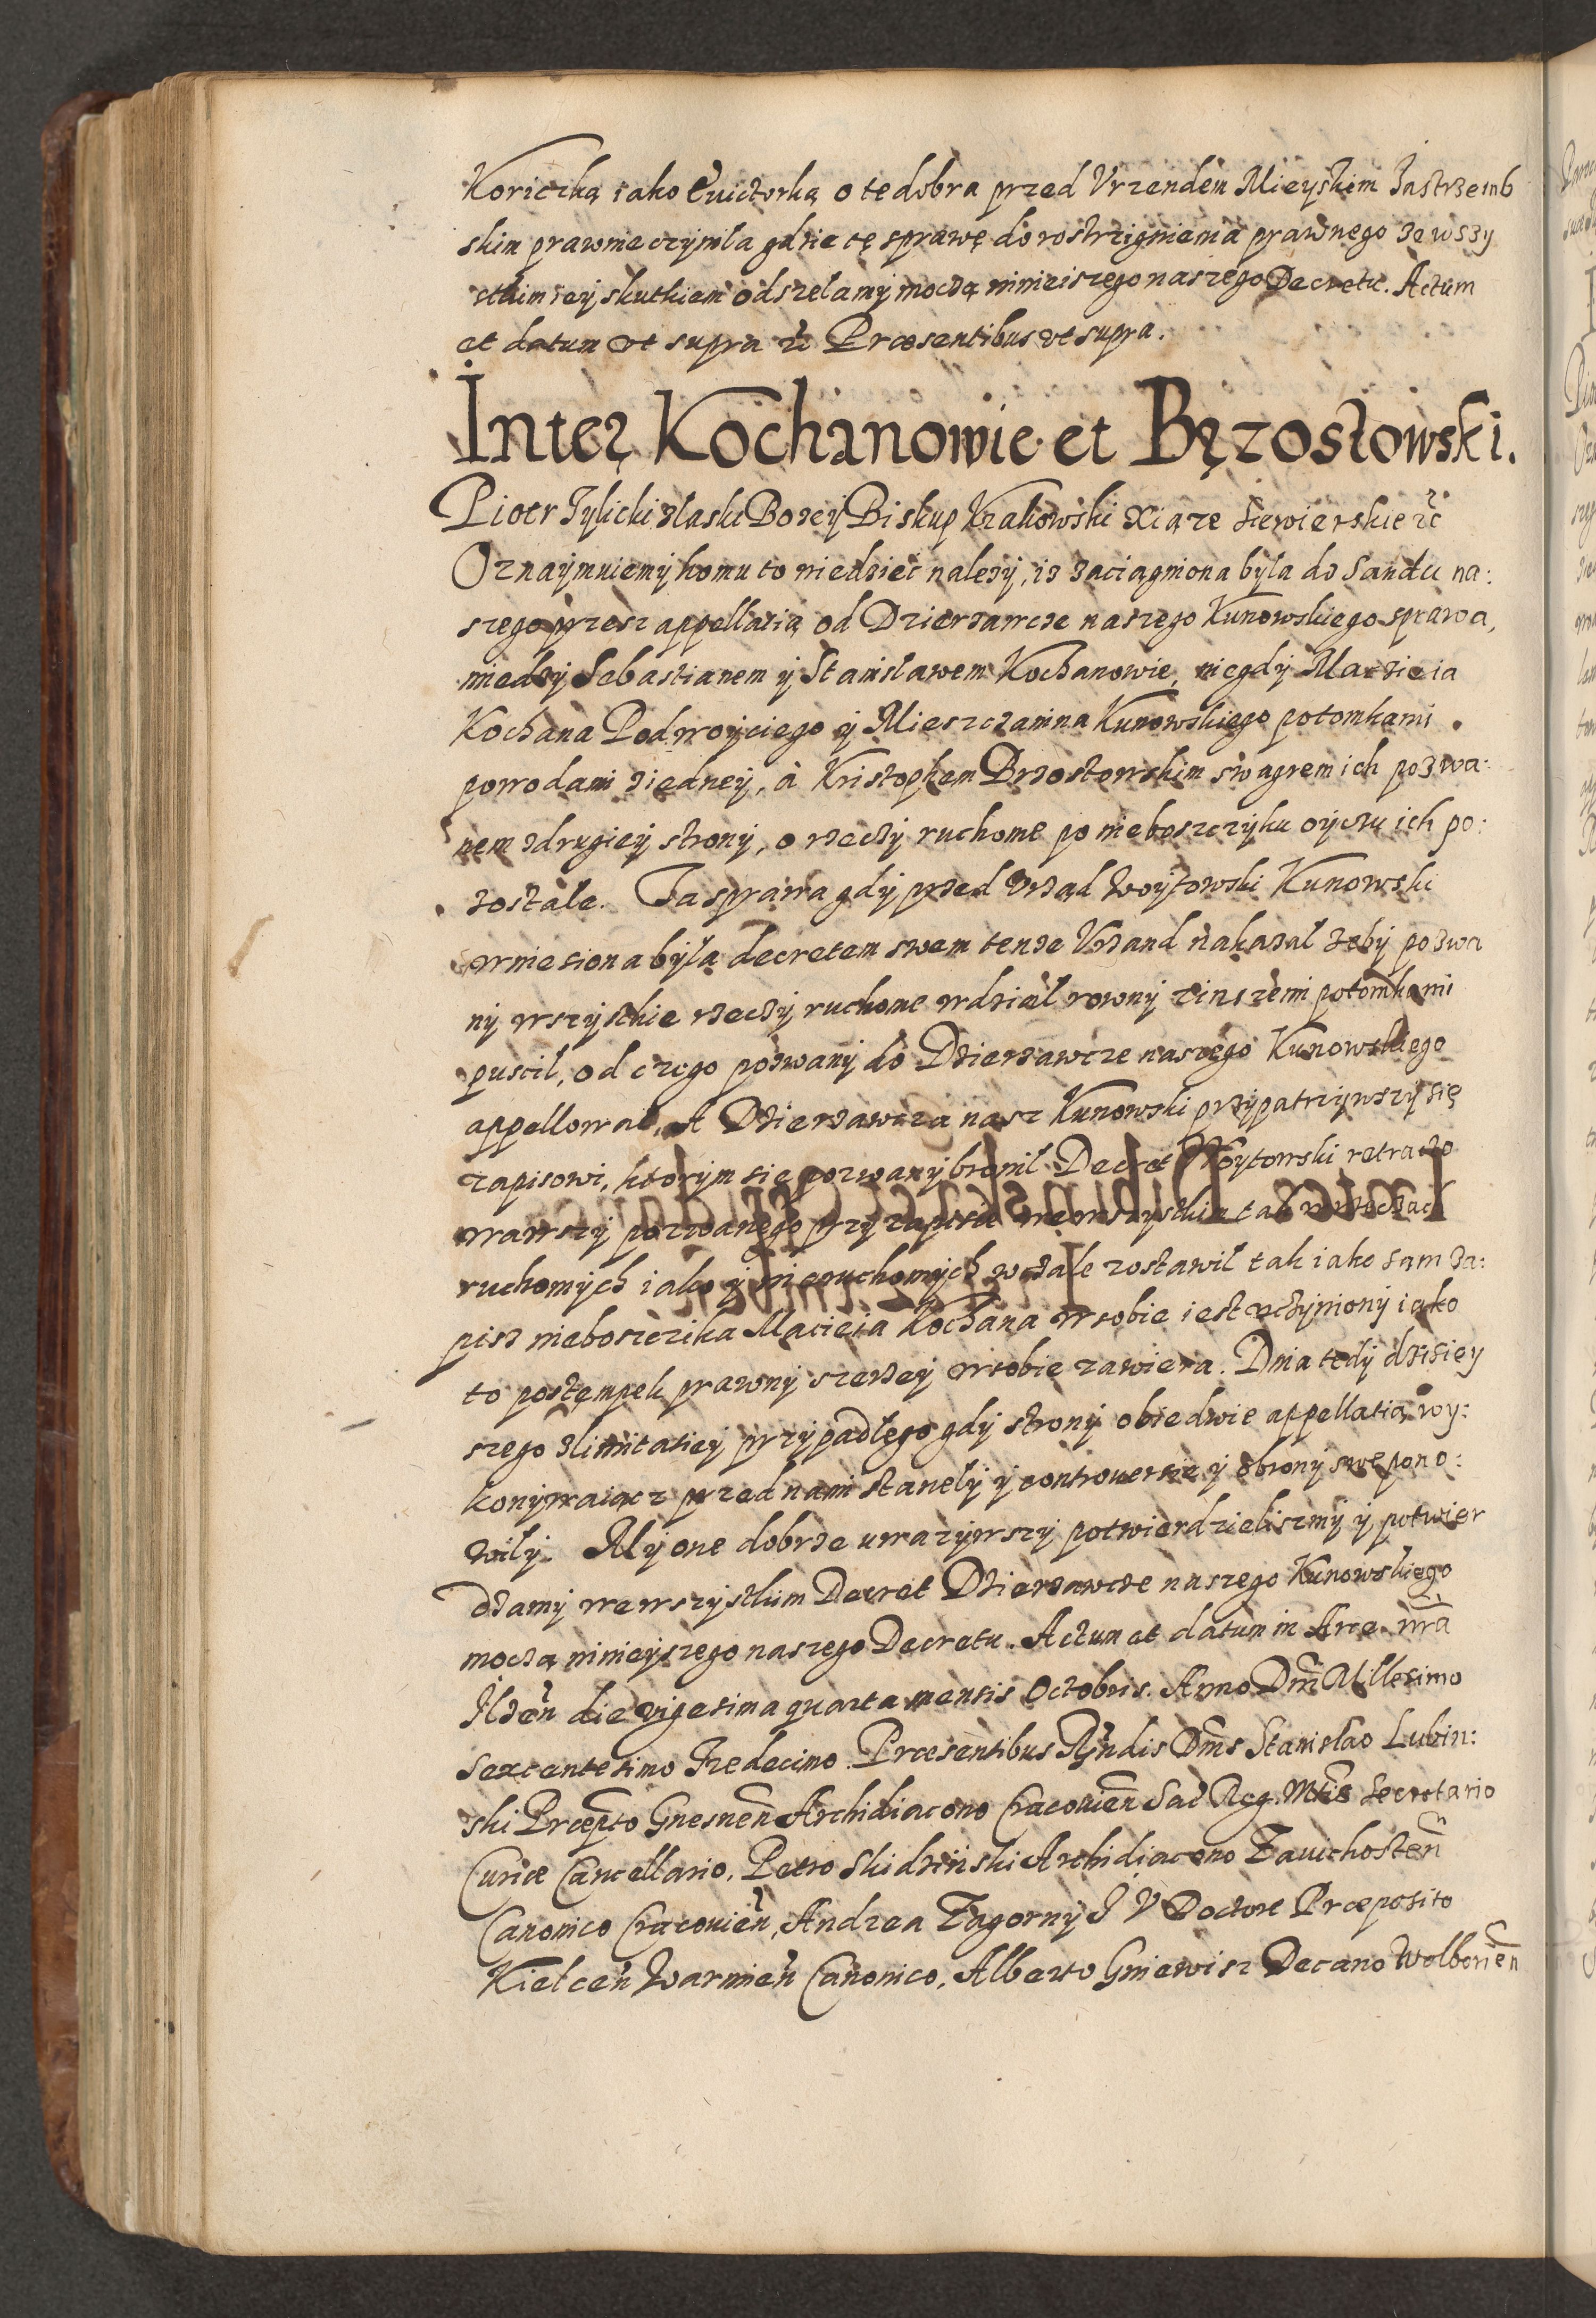 Koriczką iako Evictorką o te dobra przed Vrzendem Mieyskim Jastrzemb
skim prawnie czyniła gdzie tę sprawę do rostrzignienia prawnego ze wszy
stkim iey skutkiem odszelamy moczą ninieiszego naszego Decretu. Actum
et datum vt supra &c Præsentibus vt supra.
Inter Kochanowie et Bęrzosłowski.
Piotr Tylicki z łaski Bozey Biskup Krakowski Xiąze Siewierskie &c
Oznaymuiemy komu to wiedziec nalezy, iz zaciągniona była do Sandu na:
szego przesz appellatią od Dzierzawcze naszego Kunowskiego sprawa,
miedzy Sebastianem y Stanisławem Kochanowie, niegdy Macieia
Kochana Podwoyciego y Mieszczanina Kunowskiego potomkami
powodami z iedney, à Kristophem Brzostowskim swagrem ich pozwa:
nem z drugiey strony, o rzeczy ruchome po nieboszczyku oyczu ich po:
zostałe. Ta sprawa gdy przed Vrząd Woytowski Kunowski
wniesiona była decretem swem tenze Vrzand nakazał zeby pozwa
ny wszystkie rzeczy ruchome w dział rowny z inszemi potomkami
puscił, od czego pozwany do Dzierzawcze naszego Kunowskiego
appellował, A Dzierzawcza nasz Kunowski przypatrzywszy się
zapisowi, ktorym się pozwany bronił Decret Woytowski retracto
wawszy pozwanego przy zapisie we wszystkim tak w rzeczach
ruchomych iako y nieruchomych w cale zostawił tak iako sam za:
pisz nieboszczika Macieia Kochana w sobie iest uczyniony iako
to postempek prawny szerzey w sobie zawiera. Dnia tedy dzisiey
szego z limitatiey przypadłego gdy strony obiedwie appellatią wy:
konywaiącz przed nami stanely y controuersie y obrony swe pono:
wiły. My one dobrze uwazywszy potwierdzielismy y potwier
dzamy we wszystkim Decret Dzierzawcze naszego Kunowskiego
moczą ninieyszego naszego Decretu. Actum et datum in Arce nrã
Ilzeñ die vigesima quarta mensis Octobris. Anno Dnĩ Millesimo
sexcentesimo Tredecimo. Præsentibus Rñdis Dm̃s Stanislao Lubin:
ski Præpto Gnesneñ Archidiacono Cracouieñ Sac̃ Reg. Mtis Secretario
Curiæ Cancellario, Petro Skidzinski Archidiacono Zauichosteñ
Canonico Cracouieñ, Andrea Zagorny J V Doctore Præposito
Kielceñ Warmieñ Canonico, Alberto Gniewisz Decano Wolborieñ